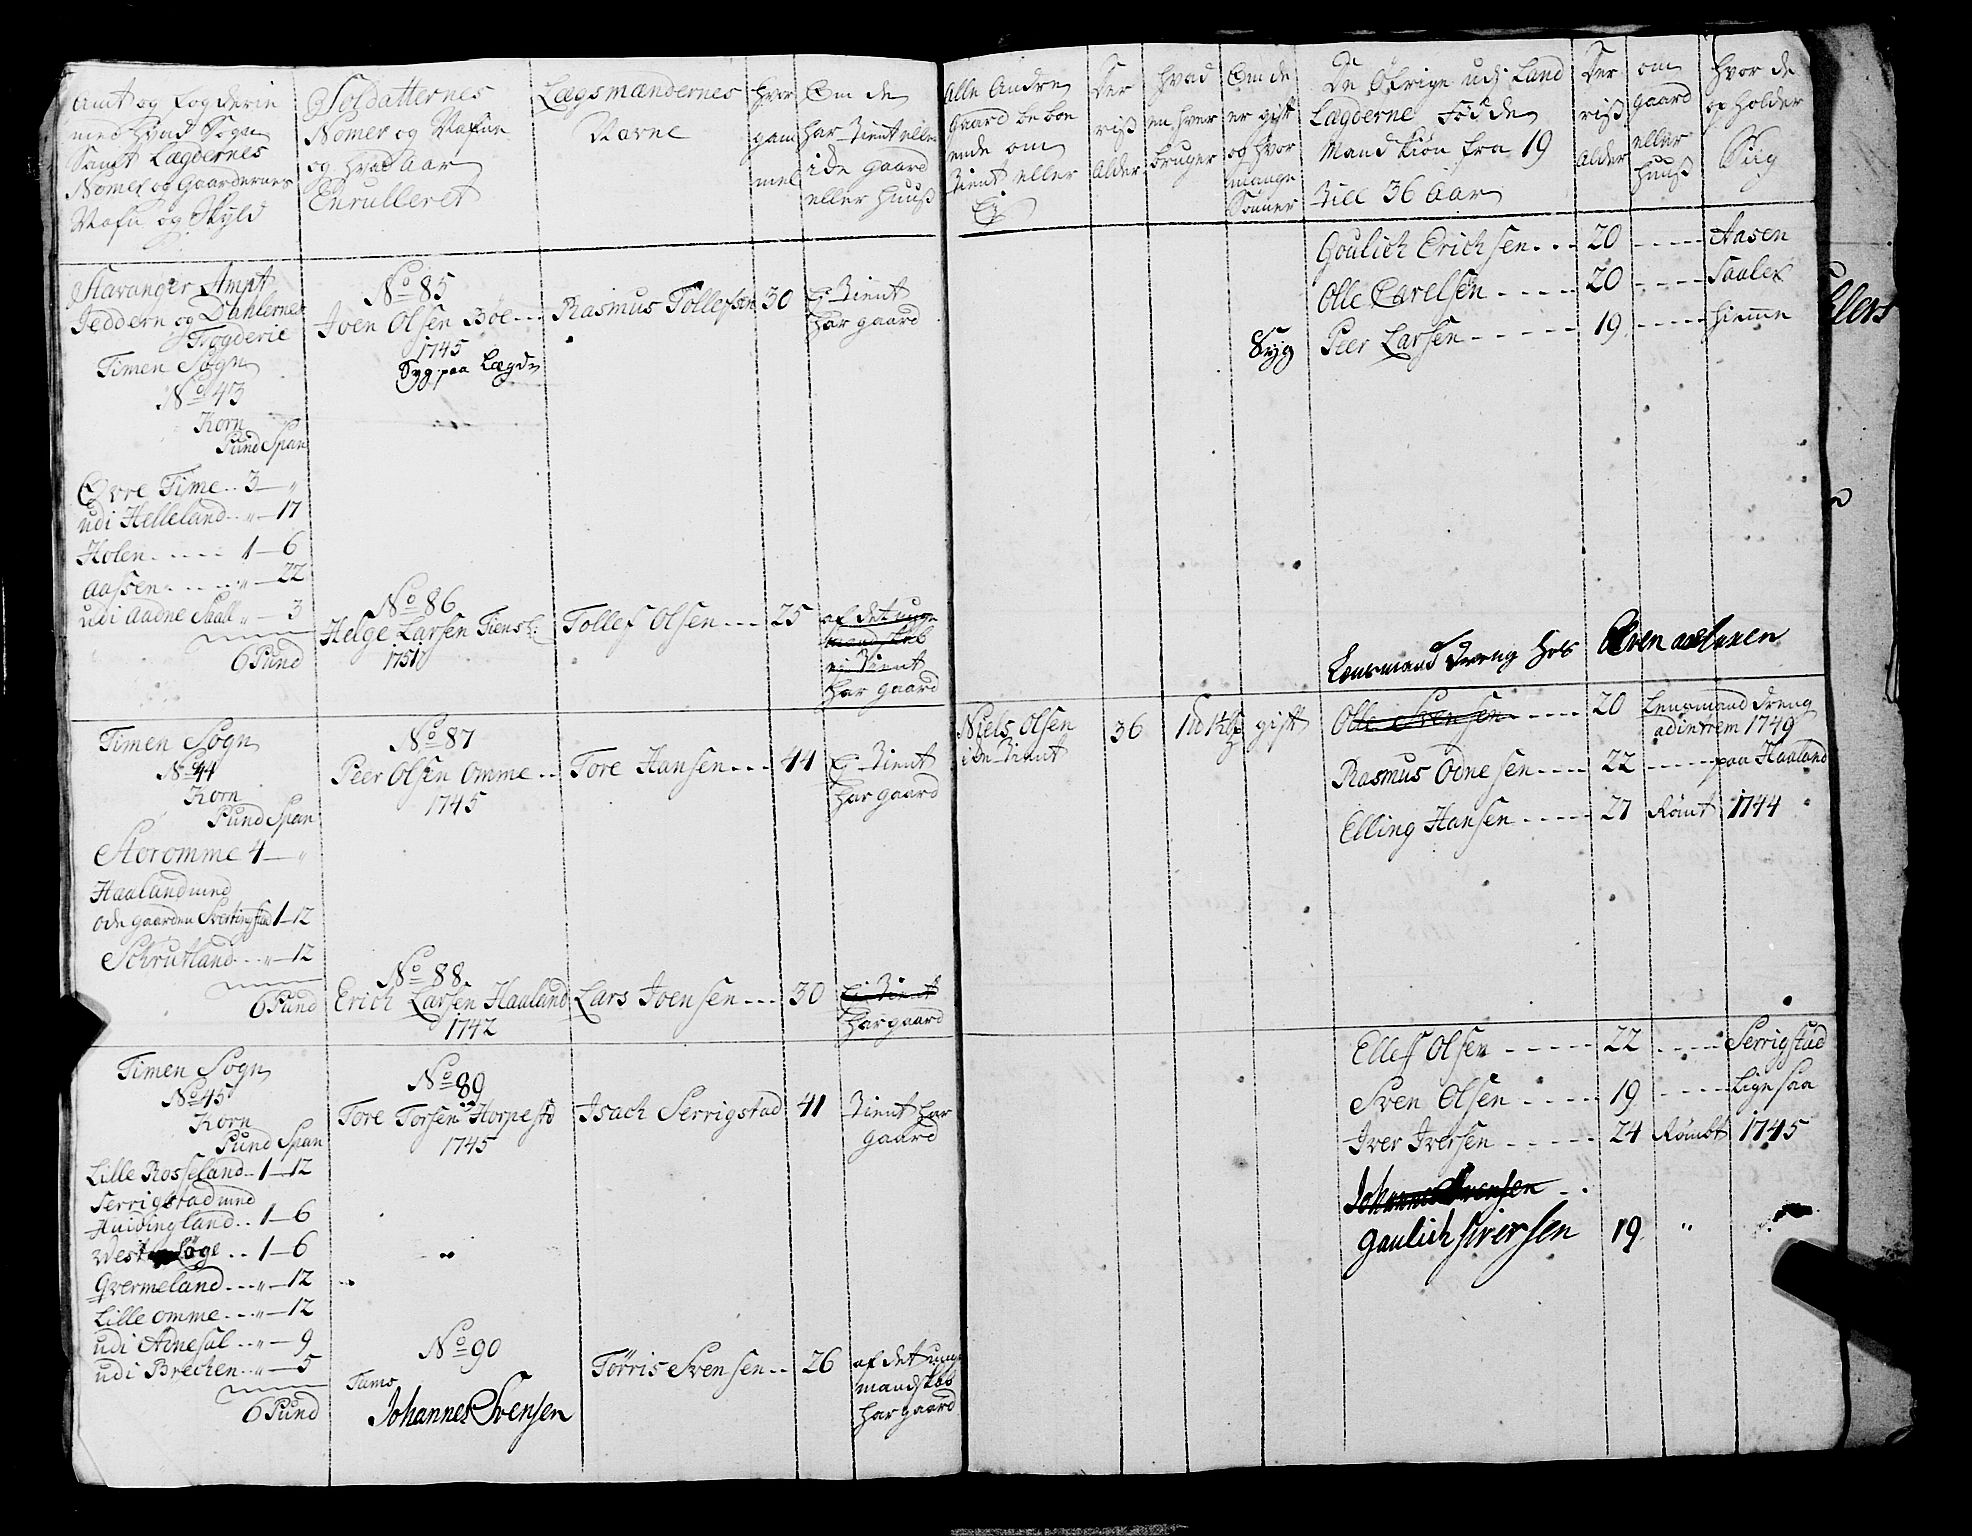 Amt og fogderie
med hvad Sogn
Samt Lægdernes
Nomer og Gaardernes
Nafn og Skyld
Soldatternes
Nomer og Nafne
og hvad Aar
Enrulleret
Lægsmændernes
Navne
hvor
gam
mel
Om de
har tient eller
i de gaard
eller huuß
Alle Andre
Gaard beboe
ende om
tient eller
Ej
Der
riß
Alder
hvad
en hver
bruger
Om de
er gift
og hvor
mange
Sønner
De Øfrige udj Land
Lægderne Fødde
Mandkiøn fra 19
till 36 Aar
Der
riß
Alder
om
gaard
eller
huuß
hvor de
op holder
Siig
Stavanger Ampt
Jeddern og Dahlernes
Fogderie
Timen Sogn
No 43
Korn
Pund Span
Øvre Time .. 3 — "
udi Helleland .. " — 17
Holen ..... 1 — 6
Aassen ..... " — 22
udi Aadne Saall " — 3
6 Pund
No 85
Joen Olsen Bøe ...
1745
Syg paa Lægdn
Rasmus Tollefsen 30
Ej tient
har gaard
Syg
Goulich Erichsen ... 20 ---- Aasen
Olle Carelsen .... 20 ---- Saalef
Peer Larsen ..... 19 ---- hiemme
No 86
Helge Larsen Tiensl:
1751
Tollef Olsen ... 25
af det unge
mandskab
ej tient
har gaard
Lensmand Dreng Hos
Timen Sogn
No 44
Korn
Pund Span
Storomme 4 — "
Haaland med
øde gaarden Svertingstad 1 — 12
Schrutland ... " — 12
6 Pund
No 87
Peer Olsen Omme ..
1745
Tore Hansen ... 44
Ej tient
har gaard
Niels Olsen 36
gift
Olle Svensen .... 20 Lensmand Dreng
1749
Rasmus Odnesen .... 22 ---- paa Haaland
Elling Hansen ..... 27 Rømt 1744
No 88
Erich Larsen Haaland
1742
Lars Joensen ... 30
Ej tient
har gaard
Timen Sogn
No 45
Korn
Pund Span
Lille Rosseland .. 1 — 12
Serrigstad med
Huidingland .. 1 — 6
.. 1 — 6
Qvermeland ... " — 12
Lille Omme ... " — 12
udi Adnesal .. " — 9
udi Brechen .. " — 5
6 Pund
No 89
Tore Torsen Horpestd
1745
Isach Serrigstad 41
Tient har
gaard
Ellef Olsen ..... 22 ---- Serrigstad
Sven Olsen ..... 19 ---- Ligesaa
Iver Iversen ..... 24 Rømbt 1745
Johannes Svensen ..
Gaulich Siversen 19 "
No 90
Johannes Svensen
Tørris Svensen .. 26
af det unge
mandskab
har gaard